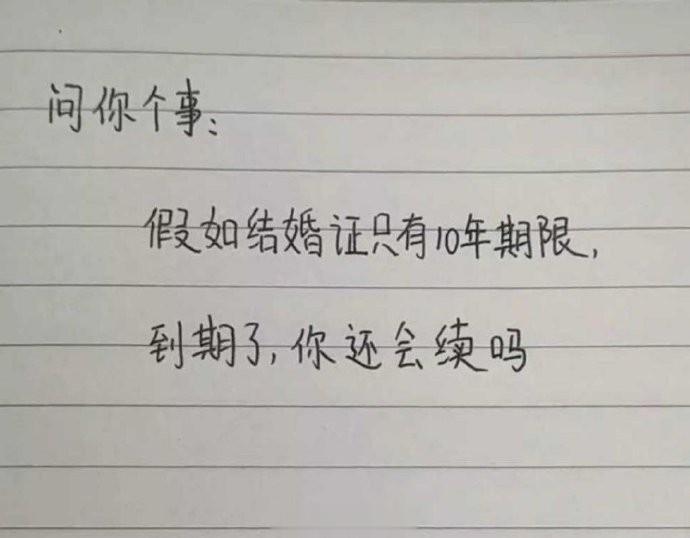 问你个事：
假如结婚证只有10年期限，
到期了，你还会续吗